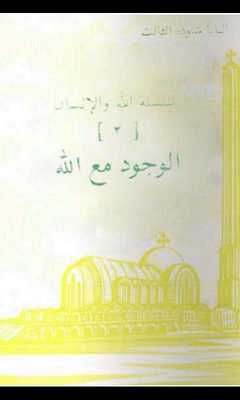 البابا شنوده الثالث
سلسلة الله والإنسان
[ ٢ ]
الوجود مع الله